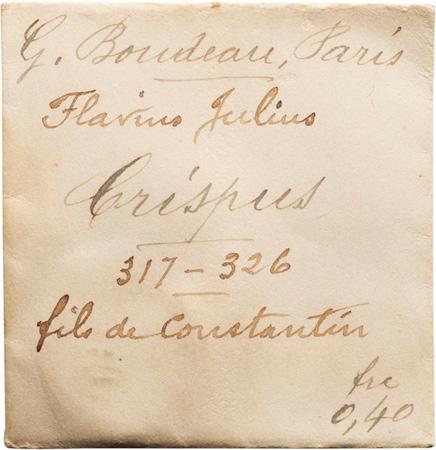 G. Boudeau, Paris
Flavius Julius
Crispus
317 – 326
fils de Constantin
frc
0,40